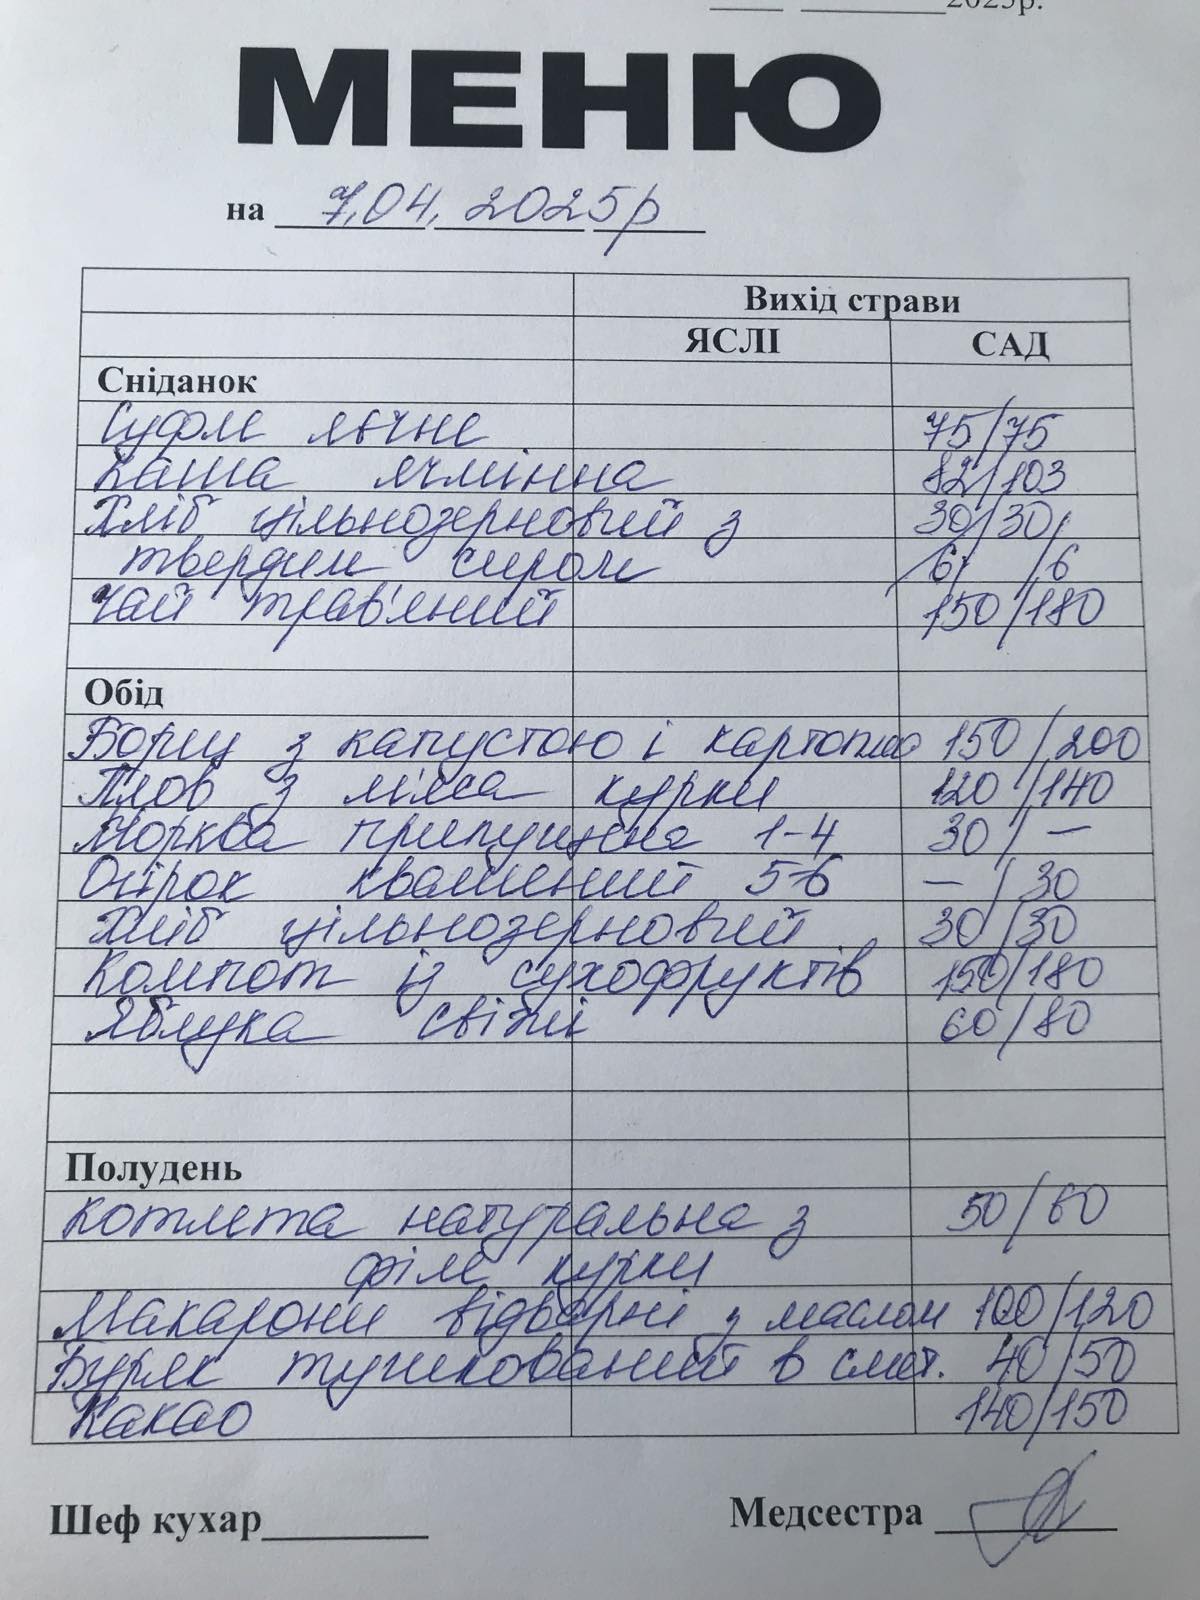 2025р.
МЕНЮ
на 7,04, 2025р
Вихід страви
ЯСЛІ САД
Сніданок
Суфле яєчне 75/75
Каша ячмінна 82/103
Хліб цільнозерновий з 30/30/
твердим сиром /6/ /6
Чай трав'яний 150/180
Обід
Борщ з капустою і картоплею 150/200
Плов з м'яса курки 120/140
Морква припущена 1-4 30/—
Огірок квашений 5-6 —/30
Хліб цільнозерновий 30/30
Компот із сухофруктів 150/180
Яблука свіжі 60/80
Полудень
Котлета натуральна з 50/60
філе курки
Макарони відварні з маслом 100/120
Буряк тушкований в смет. 40/50
Какао 140/150
Шеф кухар Медсестра